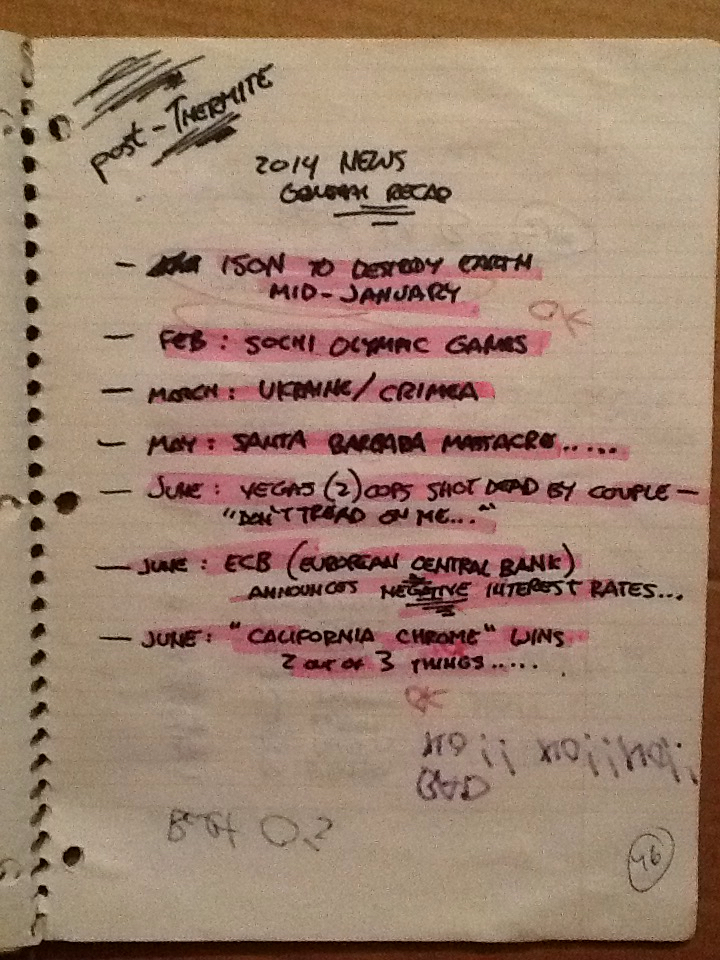 post-THERMITE
2014 NEWS
GENERAL RECAP
— ISON TO DESTROY EARTH
MID-JANUARY
OK
— FEB : SOCHI OLYMPIC GAMES
— MARCH : UKRAINE/CRIMEA
— MAY : SANTA BARBARA MASSACRE.....
— JUNE : VEGAS (2) COPS SHOT DEAD BY COUPLE —
"DON'T TREAD ON ME..."
— JUNE : ECB (EUROPEAN CENTRAL BANK)
ANNOUNCES NEGATIVE INTEREST RATES...
— JUNE : "CALIFORNIA CHROME" WINS
2 OUT OF 3 THINGS.....
OK
BAD
46